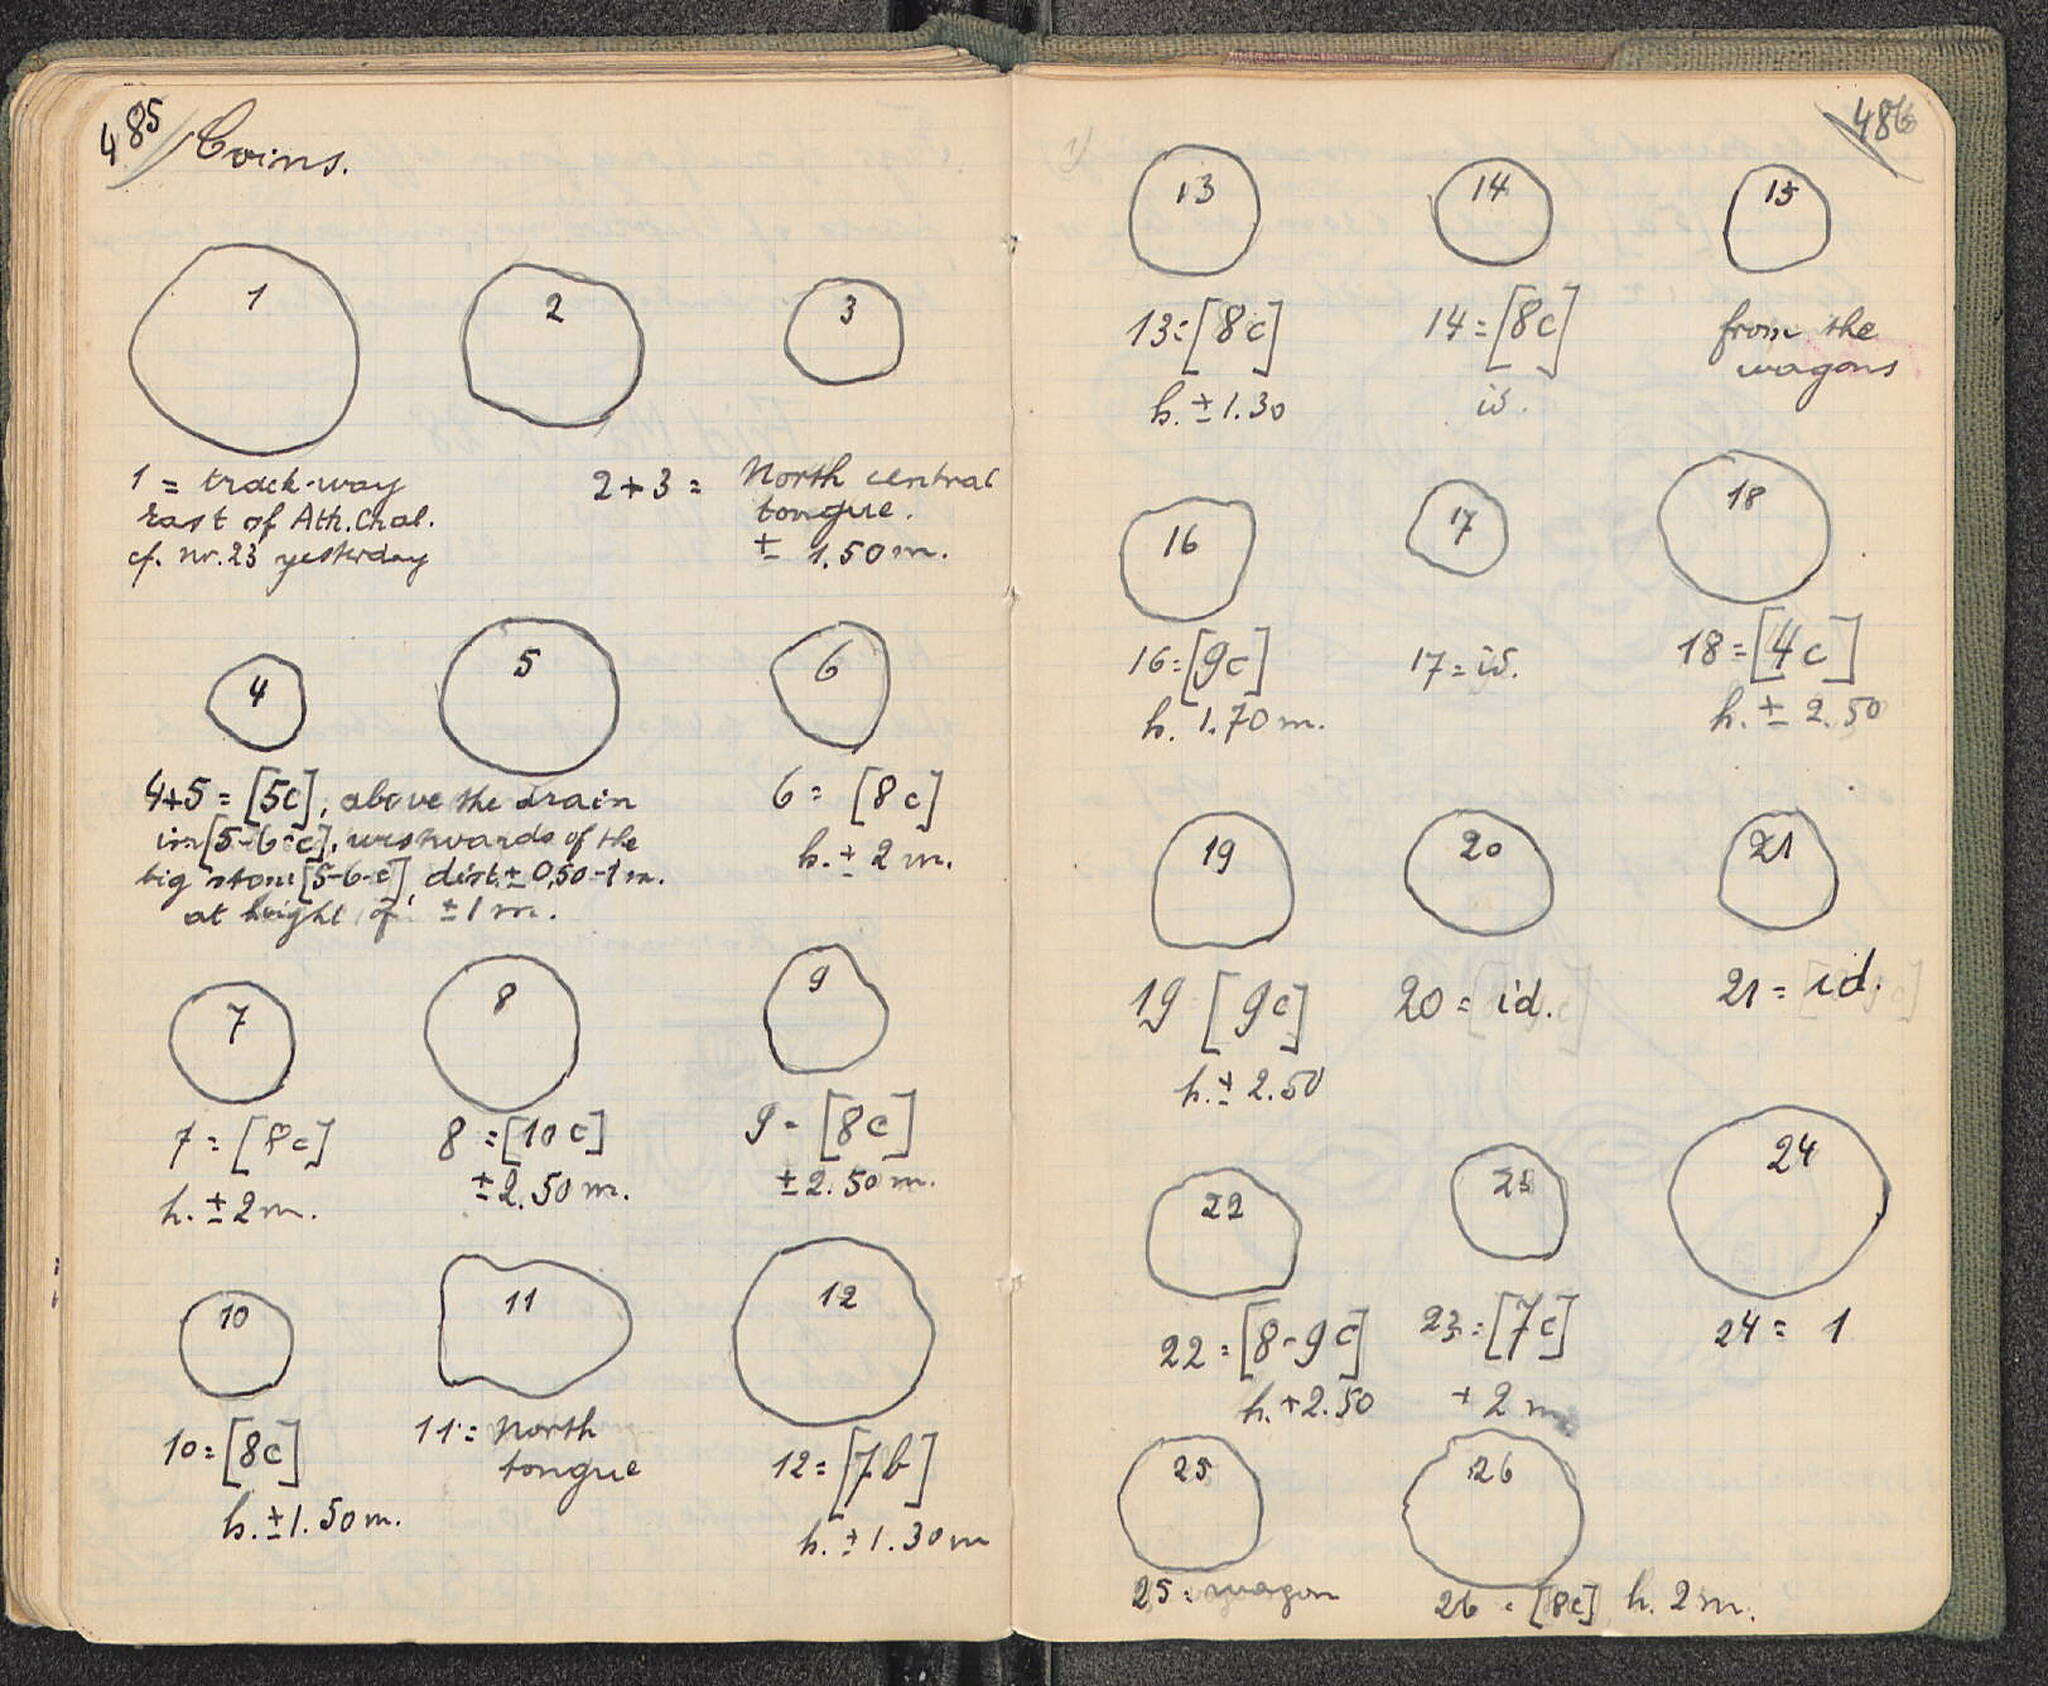 485 Coins.
1 2 3
1 = track-way
East of Ath. Chal.
cf. nr. 23 yesterday
2+3 = North central
tongue.
± 1.50 m.
4 5 6
4+5 = [5c], above the drain
in [5-6-c], westwards of the
big stone [5-6-c], dist. ± 0,50-1 m.
at height of ± 1 m.
6 = [8c]
h. ± 2 m.
7 8 9
7 = [8c]
h. ± 2 m.
8 = [10c]
± 2.50 m.
9 = [8c]
± 2.50 m.
10 11 12
10 = [8c]
h. ± 1.50 m.
11 = North
tongue
12 = [7b]
h. ± 1.30 m
486
13 14 15
13 = [8c]
h. ± 1.30
14 = [8c]
id.
from the
wagons
16 17 18
16 = [9c]
h. 1.70 m.
17 = id.
18 = [4c]
h. ± 2.50
19 20 21
19 [9c]
h. ± 2.50
20 = id.
21 = id.
22 23 24
22 = [8-9c]
h. + 2.50
23 = [7c]
+ 2 m.
24 = 1
25 26
25 = wagon
26 = [8c] h. 2 m.